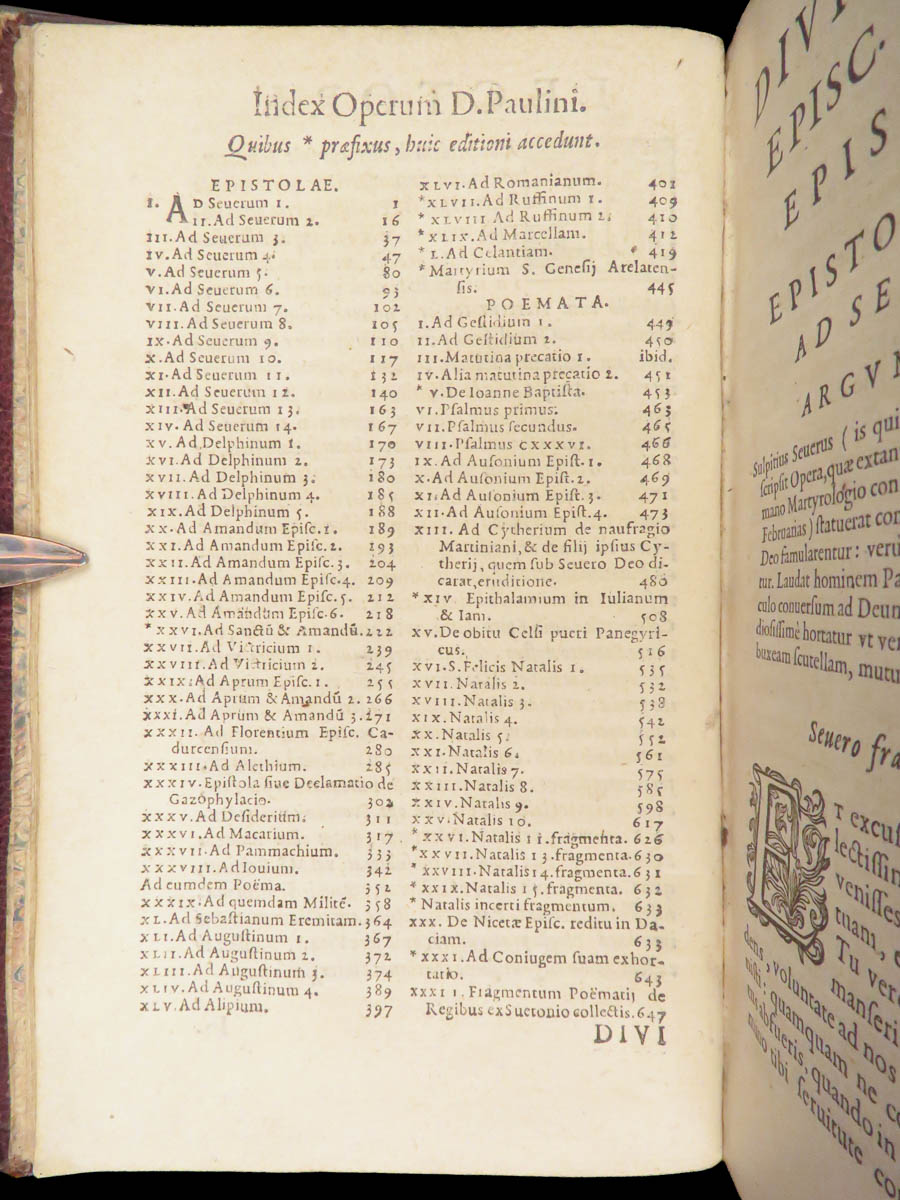 Index Operum D. Paulini.
Quibus * præfixus, huic editioni accedunt.
EPISTOLAE.
I. AD Seuerum 1. 1
II. Ad Seuerum 2. 16
III. Ad Seuerum 3. 37
IV. Ad Seuerum 4. 47
V. Ad Seuerum 5. 80
VI. Ad Seuerum 6. 93
VII. Ad Seuerum 7. 102
VIII. Ad Seuerum 8. 105
IX. Ad Seuerum 9. 110
X. Ad Seuerum 10. 117
XI. Ad Seuerum 11. 132
XII. Ad Seuerum 12. 140
XIII. Ad Seuerum 13. 163
XIV. Ad Seuerum 14. 167
XV. Ad Delphinum 1. 170
XVI. Ad Delphinum 2. 173
XVII. Ad Delphinum 3. 180
XVIII. Ad Delphinum 4. 185
XIX. Ad Delphinum 5. 188
XX. Ad Amandum Episc. 1. 189
XXI. Ad Amandum Episc. 2. 193
XXII. Ad Amandum Episc. 3. 204
XXIII. Ad Amandum Episc. 4. 209
XXIV. Ad Amandum Episc. 5. 212
XXV. Ad Amandum Episc. 6. 218
* XXVI. Ad Sanctũ & Amandũ. 222
XXVII. Ad Victricium 1. 239
XXVIII. Ad Victricium 2. 245
XXIX. Ad Aprum Episc. 1. 255
XXX. Ad Aprum & Amandũ 2. 266
XXXI. Ad Aprum & Amandũ 3. 271
XXXII. Ad Florentium Episc. Ca-
durcensium. 280
XXXIII. Ad Alethium. 285
XXXIV. Epistola siue Declamatio de
Gazophylacio. 302
XXXV. Ad Desiderium. 311
XXXVI. Ad Macarium. 317
XXXVII. Ad Pammachium. 333
XXXVIII. Ad Iouium. 342
Ad eumdem Poëma. 352
XXXIX. Ad quemdam Militẽ. 358
XL. Ad Sebastianum Eremitam. 364
XLI. Ad Augustinum 1. 367
XLII. Ad Augustinum 2. 372
XLIII. Ad Augustinum 3. 374
XLIV. Ad Augustinum 4. 389
XLV. Ad Alipium. 397
XLVI. Ad Romanianum. 401
* XLVII. Ad Ruffinum 1. 409
* XLVIII Ad Ruffinum 2. 410
* XLIX. Ad Marcellam. 412
* L. Ad Celantiam. * 419
* Martyrium S. Genesij Arelaten-
sis. 445
POEMATA.
I. Ad Gestidium 1. 449
II. Ad Gestidium 2. 450
III. Matutina precatio 1. ibid.
IV. Alia matutina precatio 2. 451
* V. De Ioanne Baptista. 453
VI. Psalmus primus. 463
VII. Psalmus secundus. 465
VIII. Psalmus CXXXVI. 466
IX. Ad Ausonium Epist. 1. 468
X. Ad Ausonium Epist. 2. 469
XI. Ad Ausonium Epist. 3. 471
XII. Ad Ausonium Epist. 4. 473
XIII. Ad Cytherium de naufragio
Martiniani, & de filij ipsius Cy-
therij, quem sub Seuero Deo di-
carat, eruditione. 480
* XIV Epithalamium in Iulianum
& Iam. 508
XV. De obitu Celsi pueri Panegyri-
cus. 516
XVI. S. Felicis Natalis 1. 535
XVII. Natalis 2. 532
XVIII. Natalis 3. 538
XIX. Natalis 4. 542
XX. Natalis 5. 552
XXI. Natalis 6. 561
XXII. Natalis 7. 575
XXIII. Natalis 8. 585
XXIV. Natalis 9. 598
XXV. Natalis 10. 617
* XXVI. Natalis 11. fragmenta. 626
* XXVII. Natalis 13. fragmenta. 630
* XXVIII. Natalis 14. fragmenta. 631
* XXIX. Natalis 15. fragmenta. 632
* Natalis incerti fragmentum. 633
XXX. De Nicetæ Episc. reditu in Da-
ciam. 633
* XXXI. Ad Coniugem suam exhor-
tatio. 643
XXXII. Fragmentum Poëmatij de
Regibus ex Suetonio collectis. 647
DIVI
DIVI
EPISC.
EPIS
EPISTO
AD SE
ARGVM
Sulpitius Seuerus ( is qui
scripsit Opera, quæ extan
mano Martyrologio con
Februarias) statuerat con
Deo famularentur: veru
tur. Laudat hominem Pa
culo conuersum ad Deum
diosissimè hortatur vt ver
buxeam scutellam, mutu
Seuero fra
ET excus
lectissim
venisses
tuam, e
Tu verò
manseri
dens, voluntate ad nos
nisti: quamquam ne co
abfueris, quando in
mino tibi seruitute co